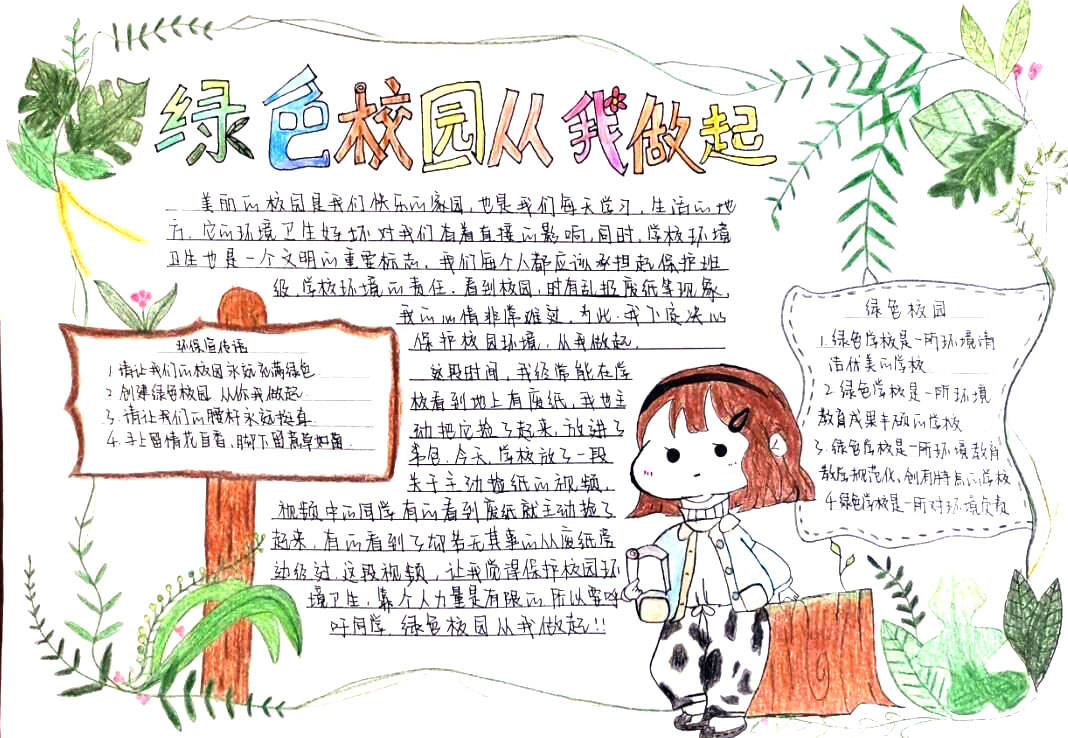 绿色校园从我做起
美丽的校园是我们快乐的家园,也是我们每天学习,生活的地
方,它的环境卫生好坏对我们有着直接的影响,同时,学校环境
卫生也是一个文明的重要标志,我们每个人都应该承担起保护班
级,学校环境的责任.看到校园,时有乱扔废纸等现象,
我的心情非常难过,为此,我下定决心
保护校园环境,从我做起.
这段时间,我经常能在学
校看到地上有废纸,我也主
动把它捡了起来,放进了
书包.今天,学校放了一段
关于主动捡纸的视频,
视频中的同学有的看到废纸就主动捡了
起来,有的看到了却若无其事的从废纸旁
边经过.这段视频,让我觉得保护校园环
境卫生,靠个人力量是有限的所以要呼
吁同学 绿色校园从我做起!!
环保宣传语
1.请让我们的校园永远充满绿色
2.创建绿色校园 从你我做起
3.请让我们的腰杆永远挺直
4.手上留情花自香,脚下留意草如茵
绿色校园
1.绿色学校是一所环境清
洁优美的学校
2.绿色学校是一所环境
教育成果丰硕的学校
3.绿色学校是一所环境教育
教学规范化,创有特点的学校
4.绿色学校是一所对环境负责